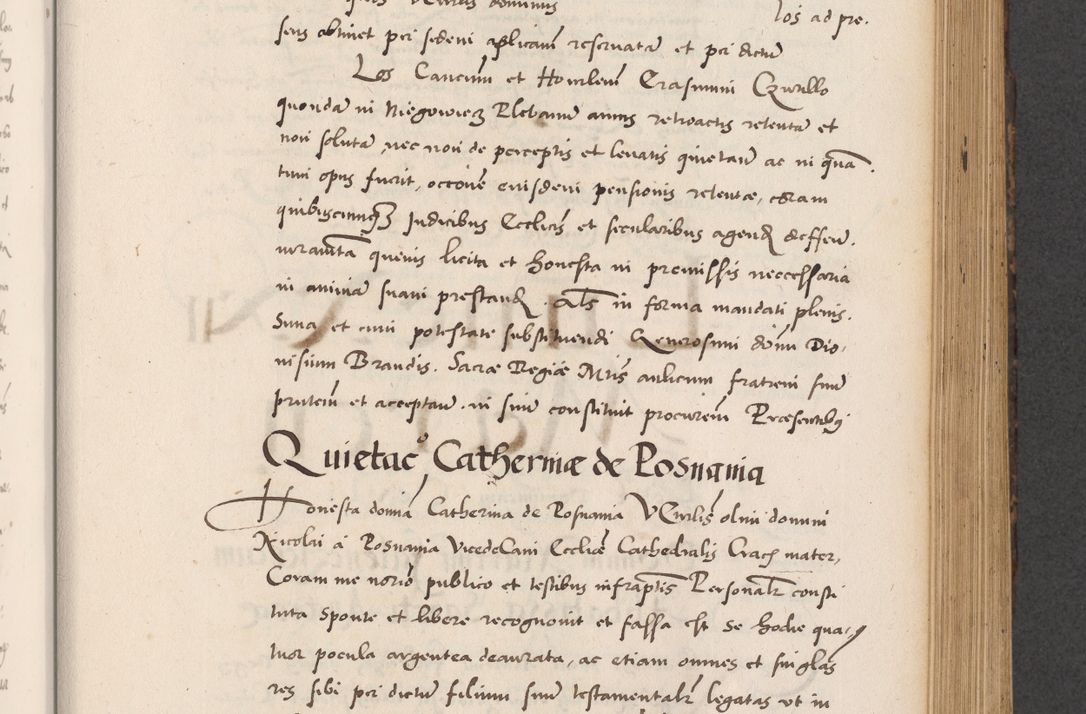 los ad pre,
sens obtinet per sedem aplicam reservata et per dictum
Los Canciim et Erasmum Czwrillo
quonda in Niegowicz Plebanum annis retroactis retenta et
non soluta, nec non de perceptis et levatis quietan ac in quan,
tum opus fuerit, occone eiusdem pensionis retentæ, coram
quibuscunq Iudicibus Ecclicis et secularibus agend deffen.
queuis licita et honesta in premissis neccessaria
in animam suam prestand. Als in forma mandati plenis.
sima et cum potestate substituendi Generosum dónm Dio,
nisium Brandis. Sacræ Regiæ Mtis aulicum fratrem suum
pntem et acceptan. in suum constituit procurem Præsentibus
Quietaco Catherinæ de Posnania
Honesta domna Catherina de Posnania olim domini
Nicolai a Posnania ViceDecani Eccliæ Cathedralis Crac mater,
Coram me notrio publico et testibus infraptis Personalr consti
tuta sponte et libere recognovit et fassa est se hodie qua,
tuor pocula argentea deaurata, ac etiam omnes et singlas
res sibi per dictum filium suum testamentalr legatas ut in